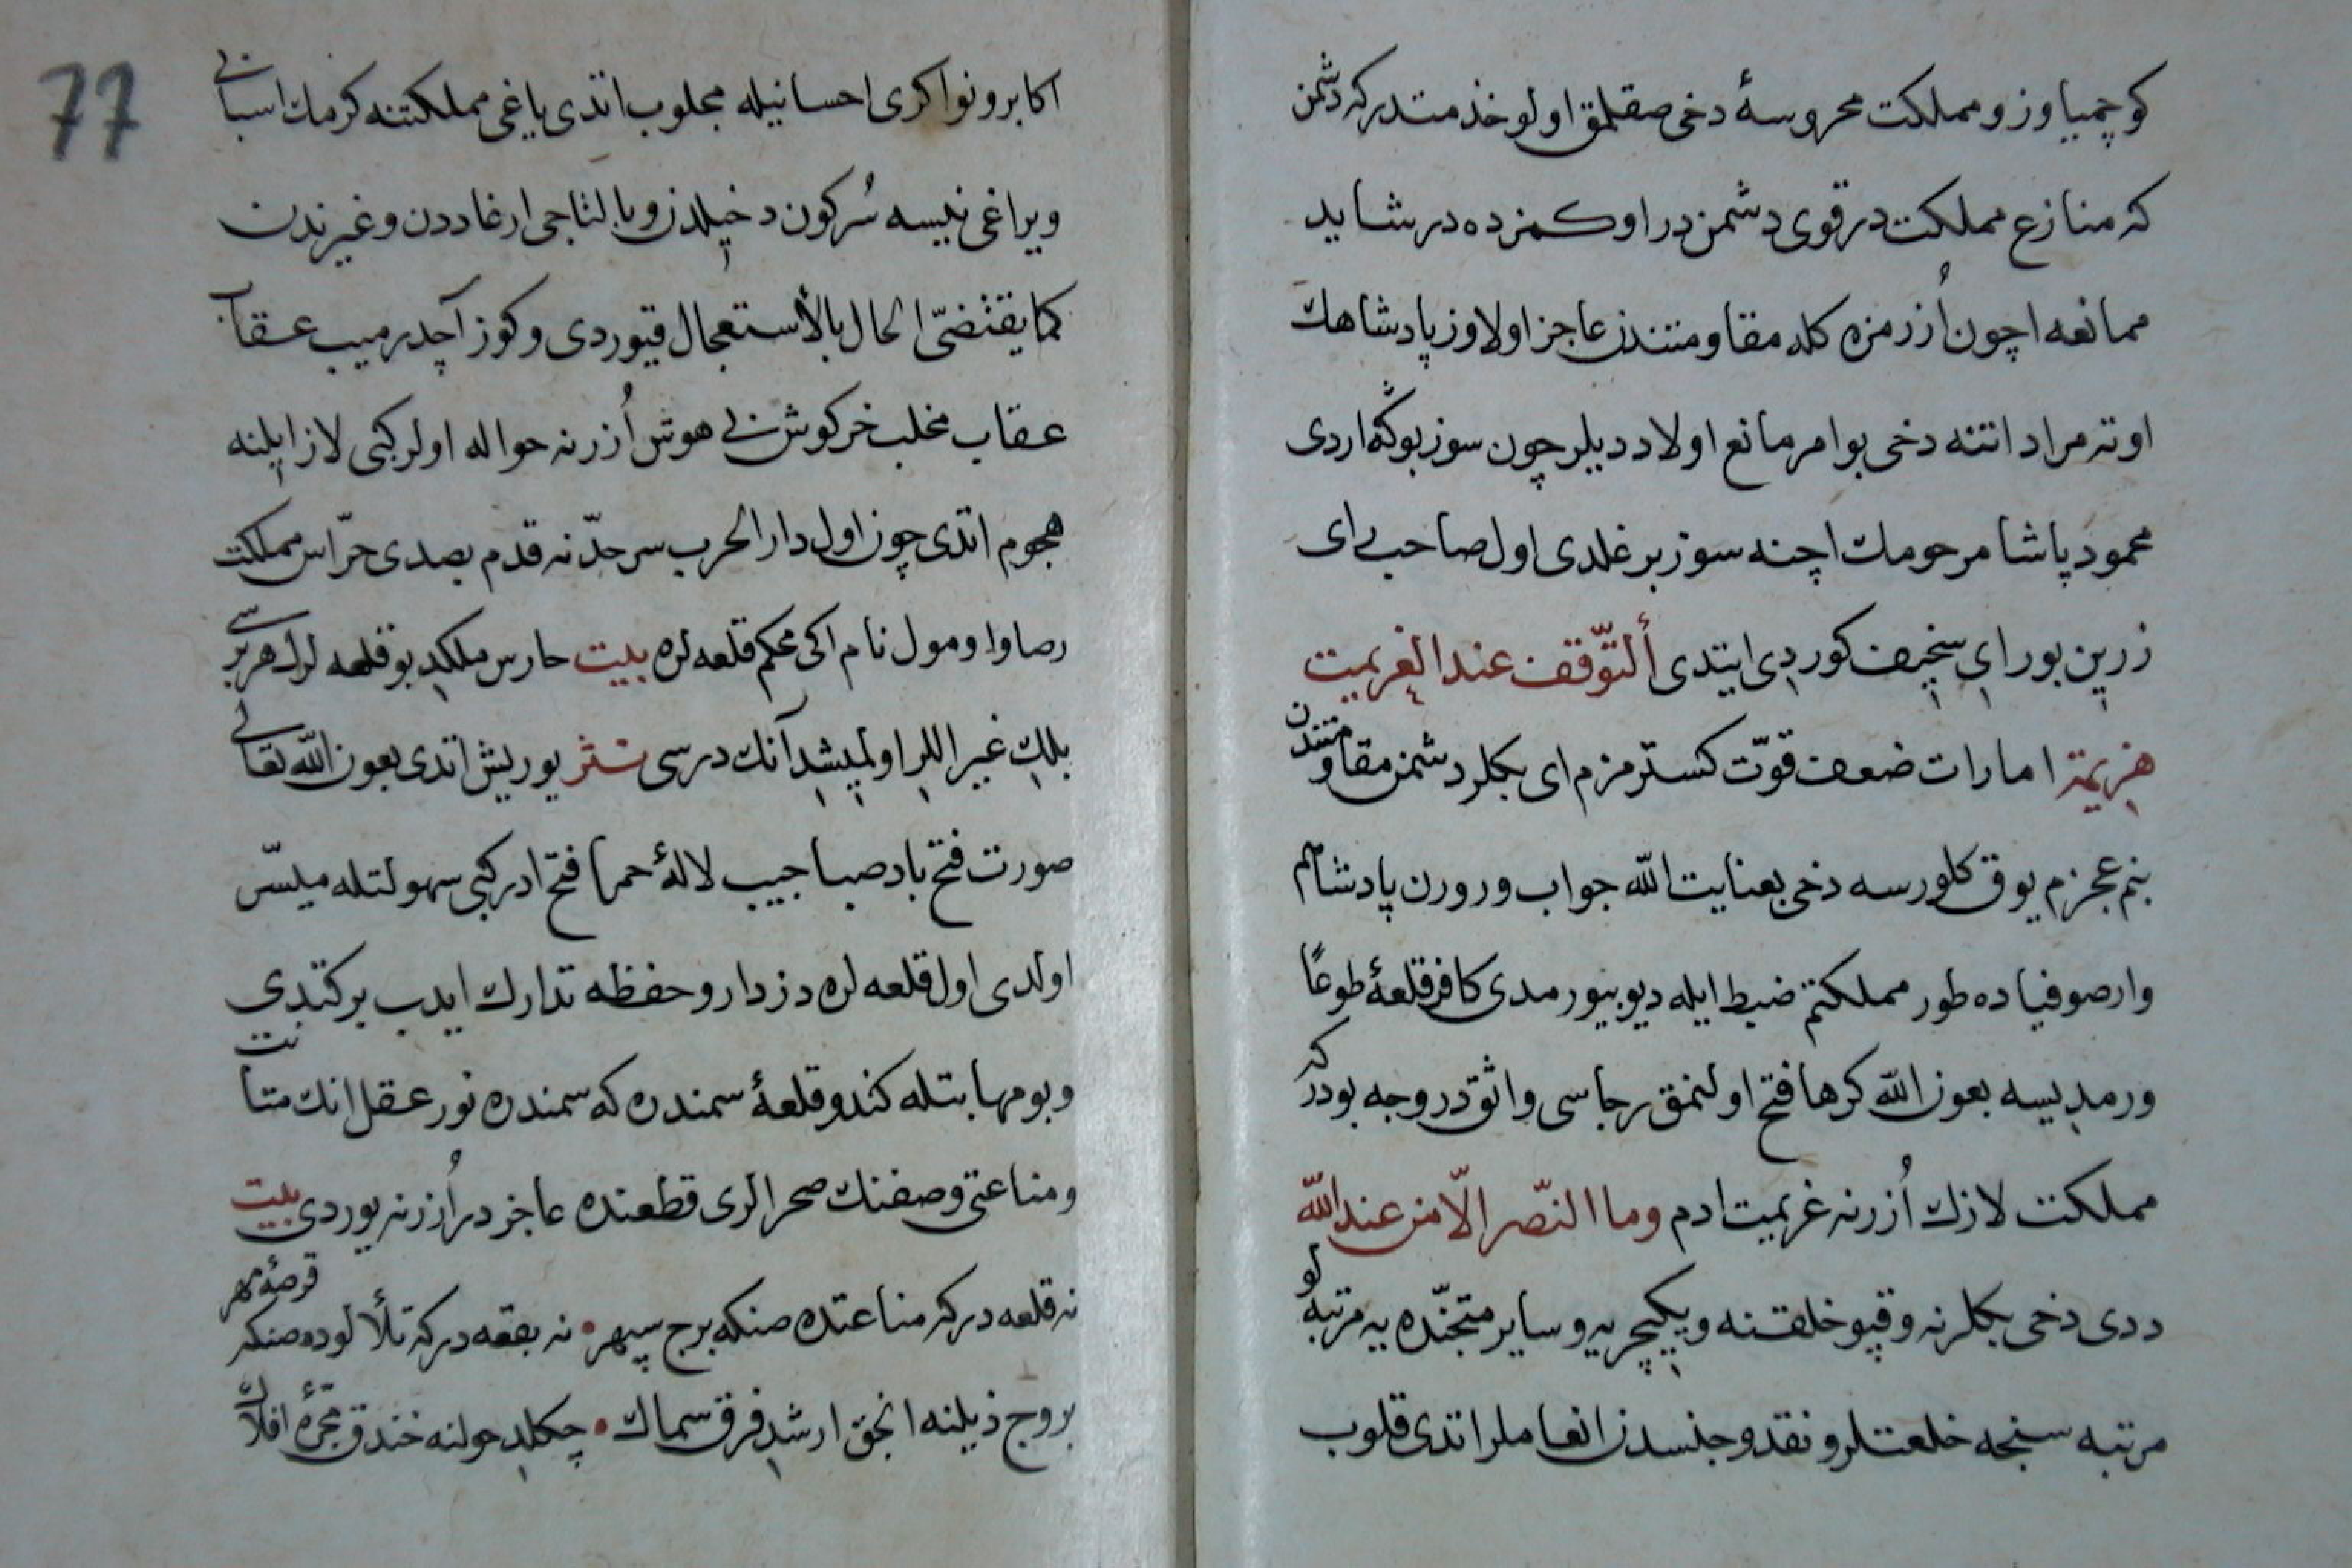 كوچمیاوز و مملكت محروسۀ دخی صقلمق اولو خدمتدر كه دشمن
كه منازع مملكت در قوی دشمن در اوكمزده در شاید
ممانعه اچون اُزرمزه كله مقاومتندن عاجز اولاوز پادشاهك
اوته مراد اتتنه دخی بو امر مانع اولا ددیلر چون سوز بوكه اردی
محمود پاشا مرحومك اچنه سوز بر غلدی اول صاحب رای
زرین بو رایِ سخیف كوردی ایتدی ألتّوقف عند العزیمت
هزیمة امارات ضعف قوّت كسترمزم ای بكلر دشمن مقاومتندن
بنم عجزم یوق كلورسه دخی بعنایت الله جواب ورورن پادشاهم
وار صوفیاده طور مملكتم ضبط ایله دیو بیورمدی كافر قلعۀ طوعًا
ورمدیسه بعون الله كرها فتح اولنمق رجاسی واثقدر وجه بودر كه
مملكت لازك اُزرنه عزیمت ادم وما النّصر الّا من عند الله
ددی دخی بكلرنه و قپو خلقنه و یكیچریه و سایر متجنّده یه مرتبه لو
مرتبه سنجه خلعتلر و نقد و جنسدن انعاملر اتدی قلوب
77
اكابر و نواكری احسانیله مجلوب اتدی یاغی مملكتنه كرمك اسبابی
و یراغی نیسه سُركون دخیلدن و بالتاجی ارغاددن و غیرندن
كما یقتضیّ الحال بالأستعجال قیوردی و كوز آچدرمیب عقاب
عقاب مخلب خركوش بی هوش اُزرنه حواله اولر كبی لاز ایلنه
هجوم اتدی چون اول دار الحرب سرحدّنه قدم بصدی حرّاس مملكت
رصاوا و مول نام اكی محكم قلعه لره بیت حارس ملكدِ بو قلعه لرك هر برسی
بلكِ غیر اللرِ اولمیشدِ آنك درسی نثر یوریش اتدی بعون الله تعالی
صورت فتح باد صبا جیب لالۀ حمرا فتح ادر كبی سهولتله میسّر
اولدی اول قلعه لره دزدار و حفظه تدارك ایدب بركتدی
و بو مهابتله كندو قلعۀ سمندره كه سمندره نور عقل انك متانت
و مناعتی وصفنك صحرالری قطعنده عاجز در اُزرنه یوردی بیت
نه قلعه در كه مناعتده صنكه برج سپهر • نه بقعه در كه تلألوده صنكه قرصۀ مهر
بروج ذیلنه انجق ارشدِ فرق سماك • چكلدِ حولنه خندق مجرۀ افلاك